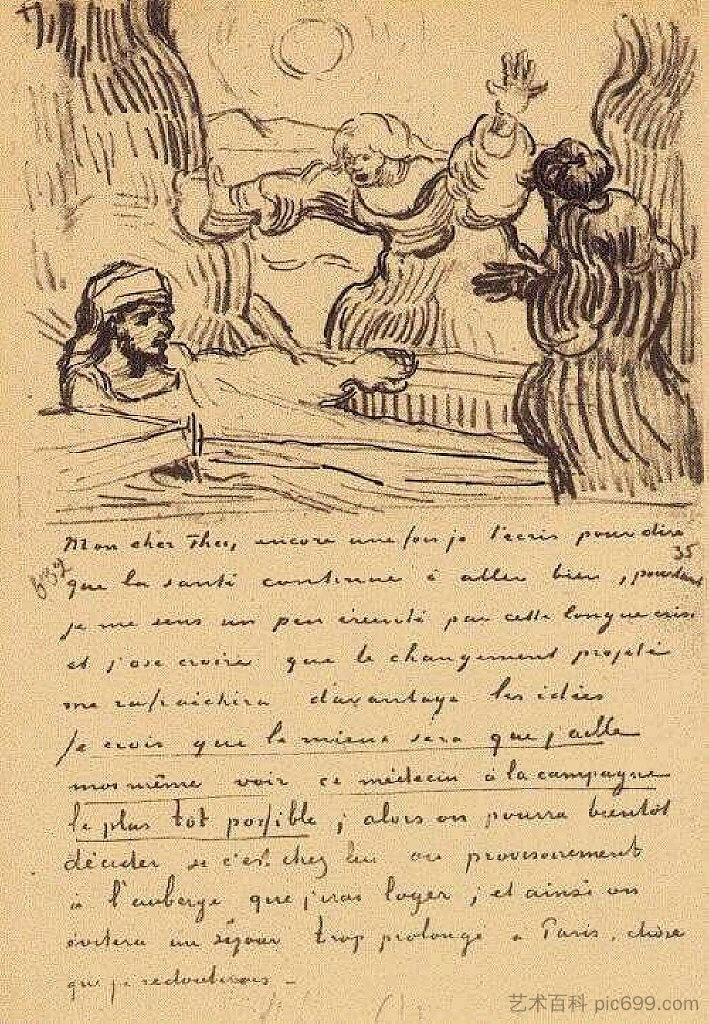 Mon cher Theo, encore une fois je t'écris pour dire
35
632
que la santé continue à aller bien, pourtant
je me sens un peu éreinté par cette longue crise
et j'ose croire que le changement projeté
me rafraichira davantage les idées
Je crois que le mieux sera que j'aille
moi même voir ce médecin à la campagne
le plus tôt possible ; alors on pourra bientôt
décider si c'est chez lui ou provisoirement
à l'auberge que j'irai loger ; et ainsi on
évitera un séjour trop prolongé à Paris, chose
que je redouterais –
艺术百科 pic699.com